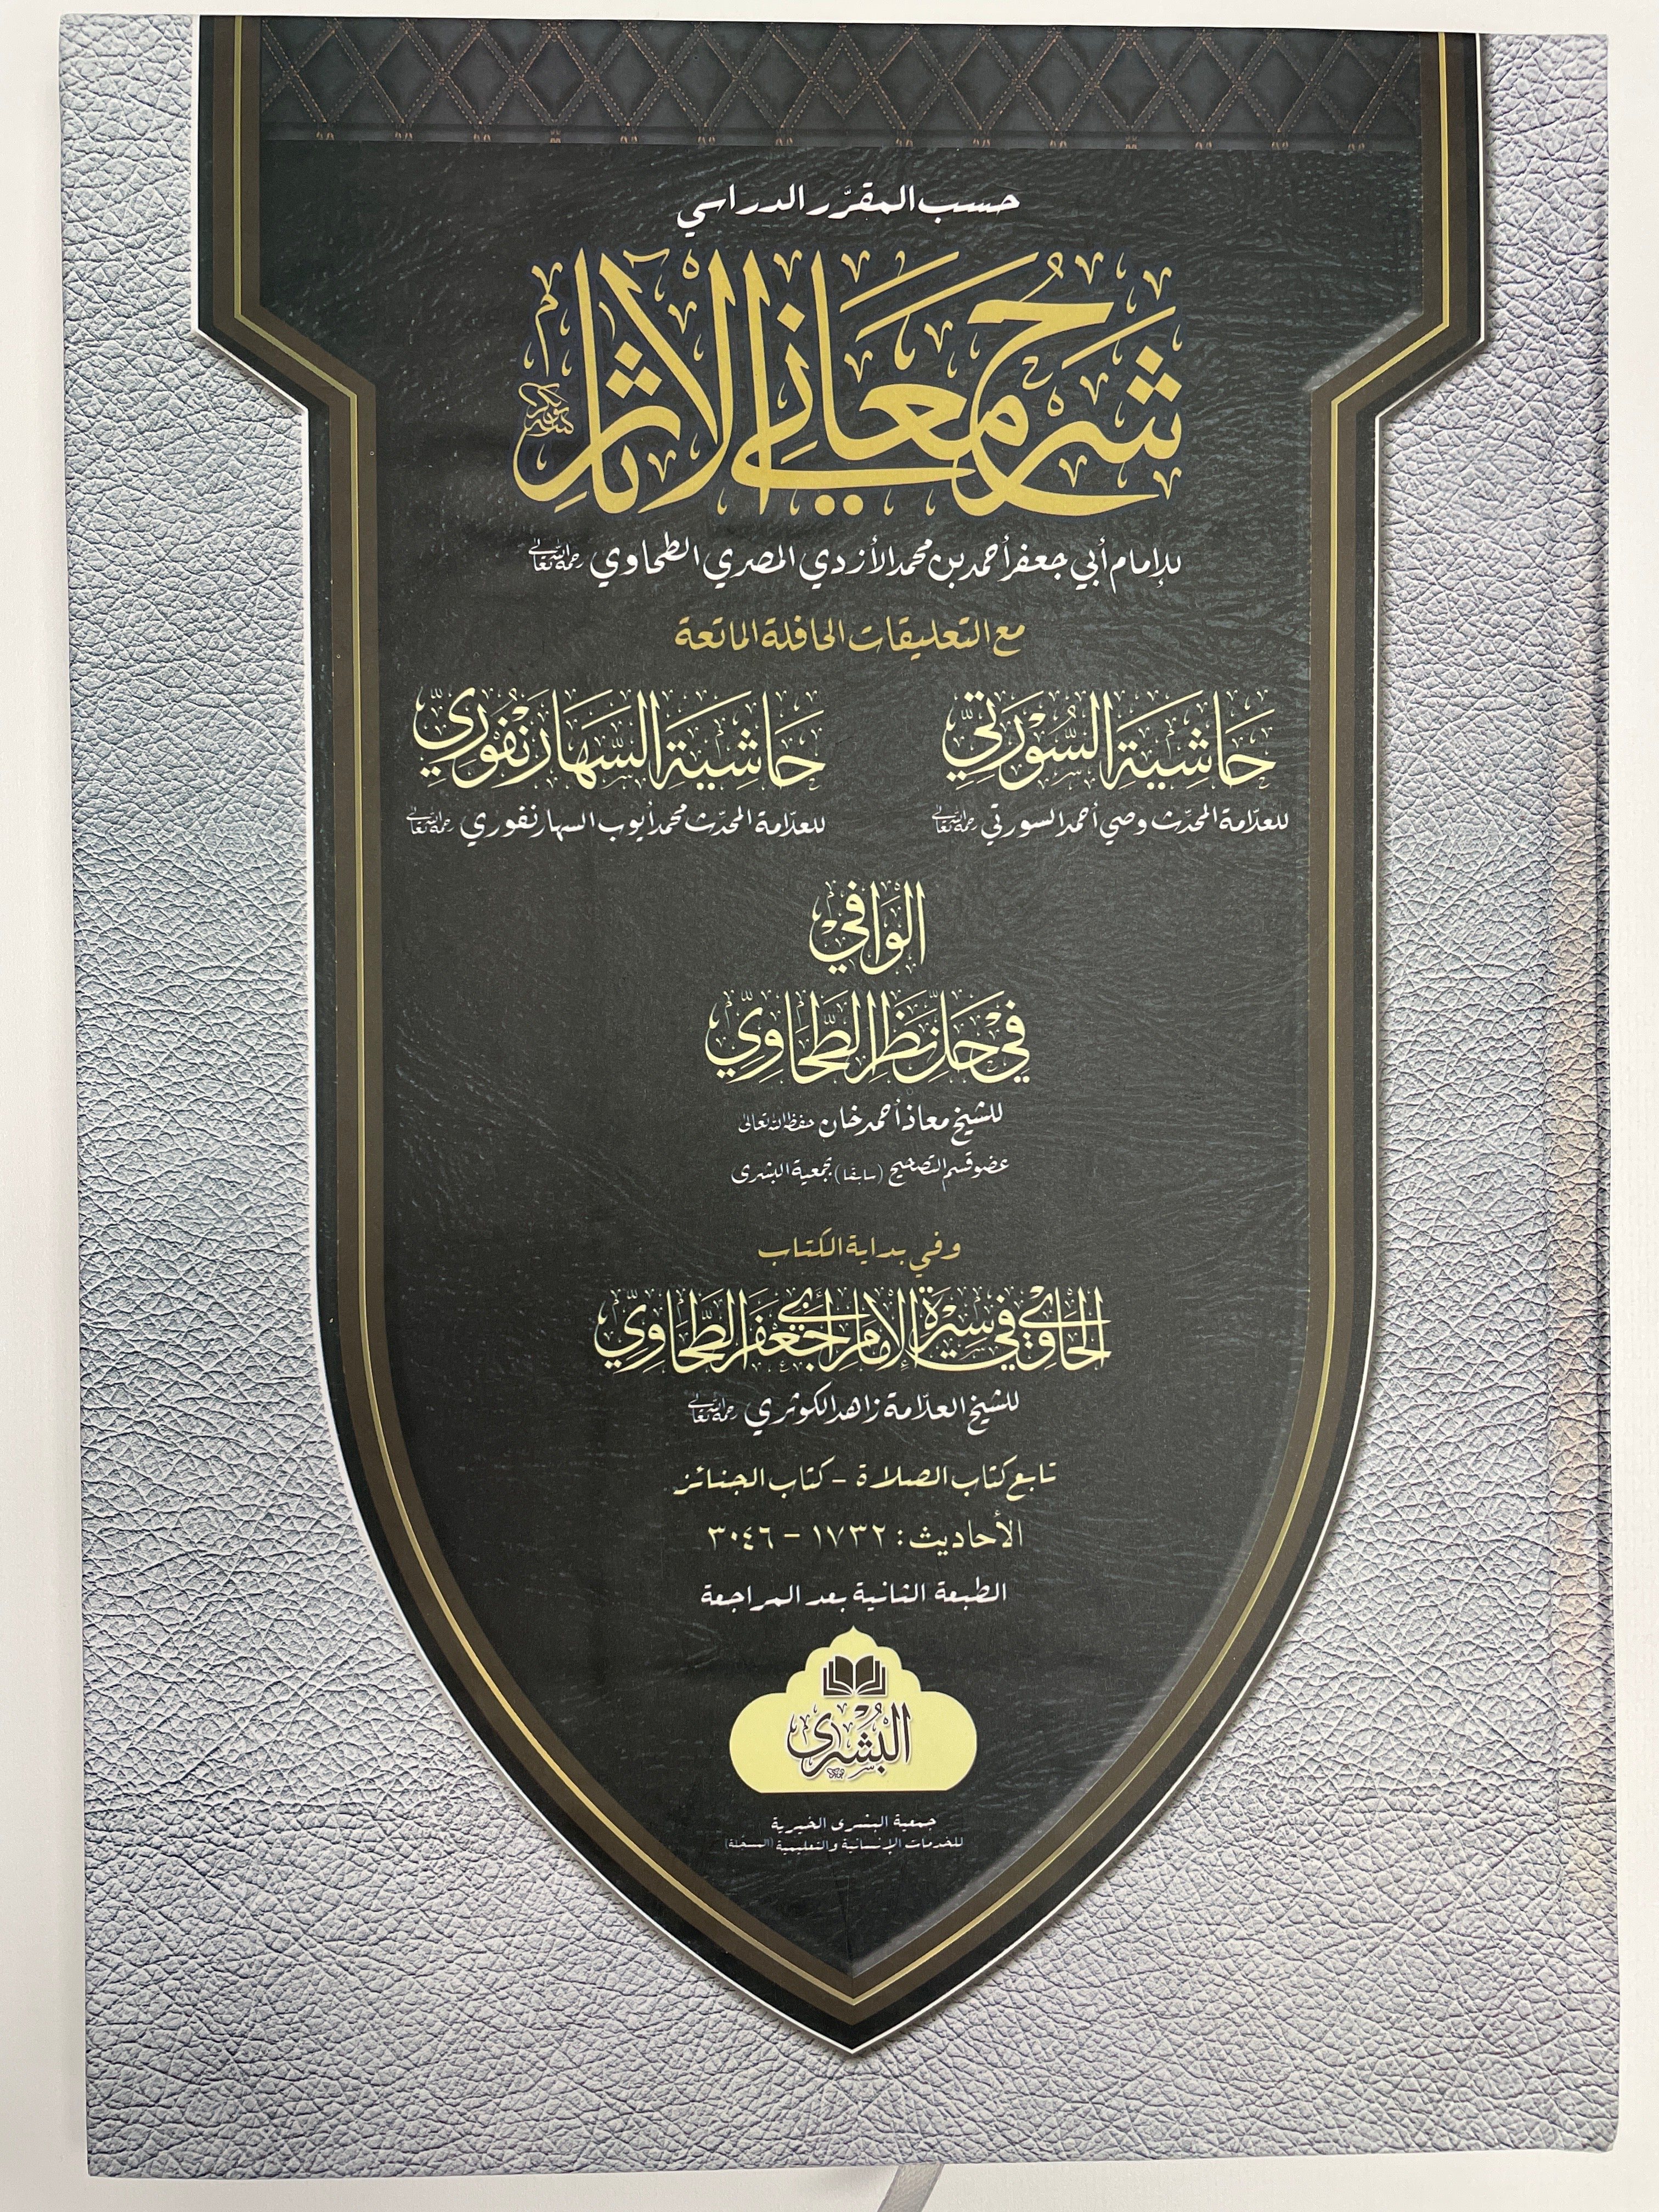 حسب المقرَّر الدراسي
شرح معاني الآثار
للإمام أبي جعفر أحمد بن محمد الأزدي المصري الطحاوي رحمه الله تعالى
مع التعليقات الحافلة الماتعة
حَاشِيَة السُّوْرَتِيّ
للعلّامة المحدّث وصي أحمد السورتي رحمه الله تعالى
حَاشِيَة السَّهَارَنْفُوْرِيّ
للعلّامة المحدّث محمد أيوب السهارنفوري رحمه الله تعالى
الْوَافِيْ
فِيْ حَلّ نَظَرِ الطَّحَاوِيّ
للشيخ معاذ أحمد خان حفظه الله تعالى
عضو قسم التصحيح (سابقًا) بجمعية البشرى
وفي بداية الكتاب
الحَاوِيْ فِي سِيْرَةِ الإِمَامِ أَبِيْ جَعْفَرِ الطَّحَاوِيّ
للشيخ العلّامة زاهد الكوثري رحمه الله تعالى
تابع كتاب الصلاة – كتاب الجنائز
الأحاديث: ١٧٣٢ – ٣٠٤٦
الطبعة الثانية بعد المراجعة
البُشْرٰى
جمعية البشرى الخيرية
للخدمات الإنسانية والتعليمية (المسجّلة)